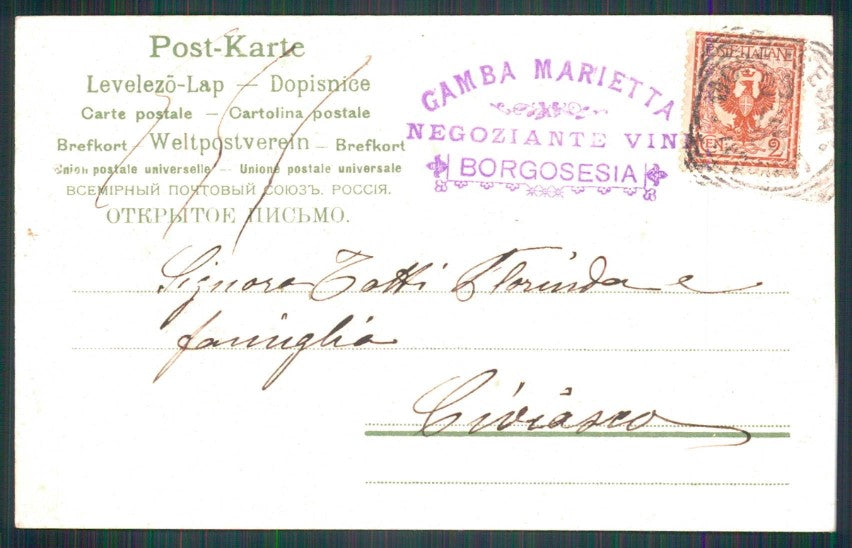 Post-Karte
Levelezõ-Lap — Dopisnice
Carte postale — Cartolina postale
Brefkort — Weltpostverein — Brefkort
Union postale universelle — Unione postale universale
ВСЕМІРНЫЙ ПОЧТОВЫЙ СОЮЗЪ. РОССІЯ.
ОТКРЫТОЕ ПИСЬМО.
GAMBA MARIETTA
NEGOZIANTE VINI
BORGOSESIA
POSTE ITALIANE
CEN 2
Signora Totti Florinda e
famiglia
Civiasco